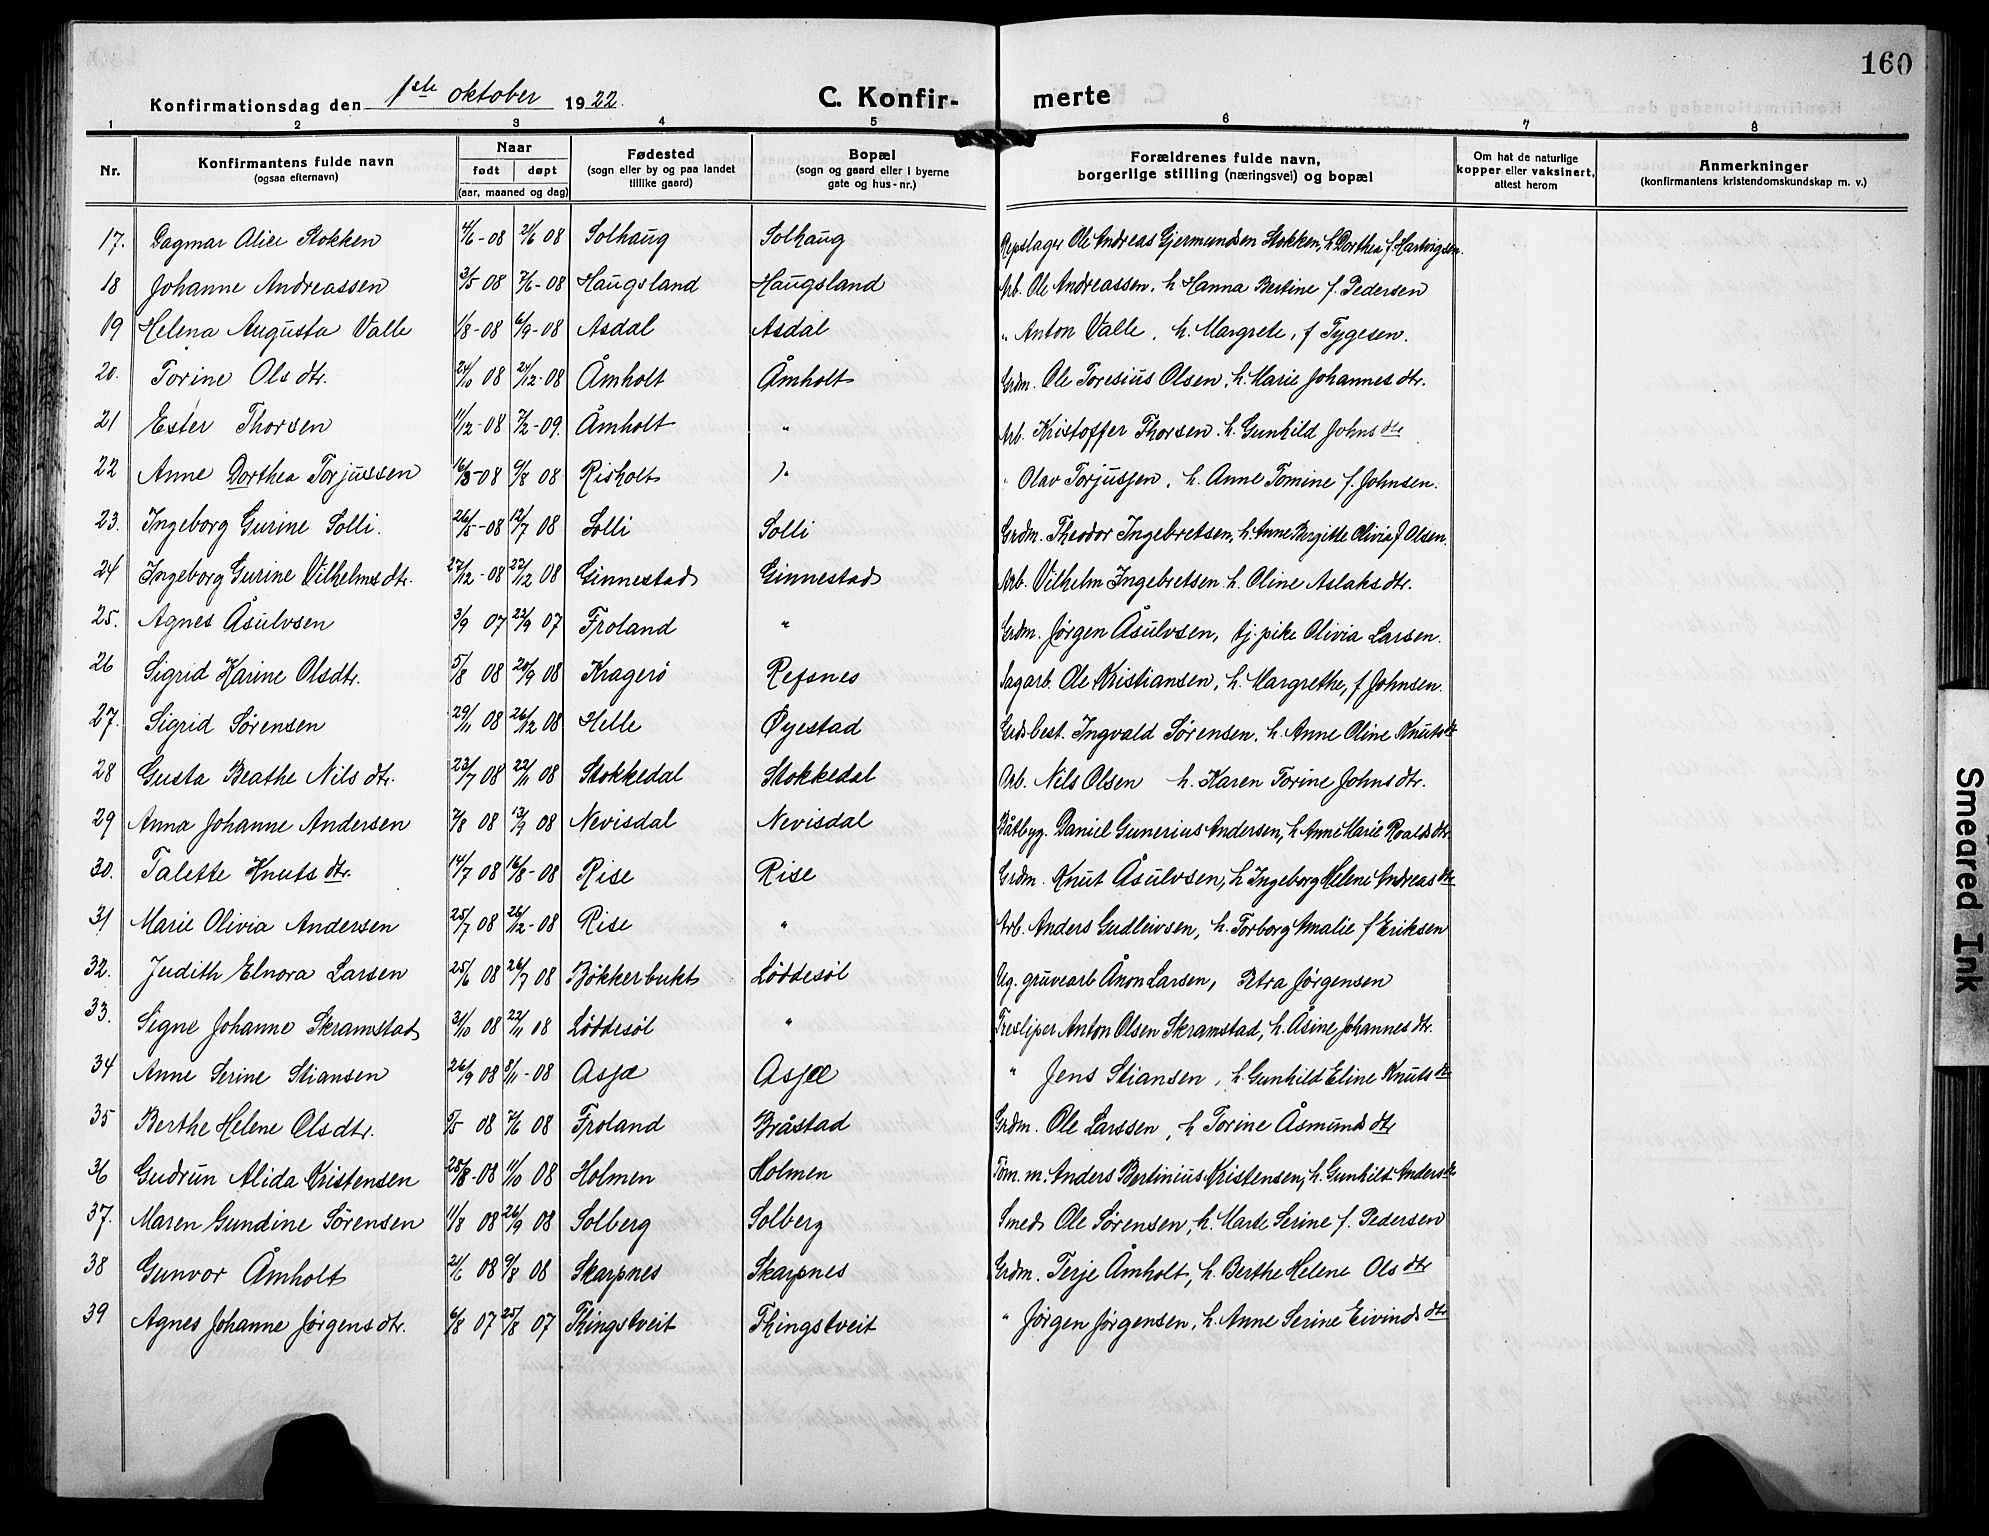 160
Konfirmationsdag den 1ste oktober 1922. C. Konfir- merte
1 2 3 4 5 6 7 8
Nr. Konfirmantens fulde navn (ogsaa efternavn) Naar født døpt (aar, maaned og dag) Fødested (sogn eller by og paa landet tillike gaard) Bopæl (sogn og gaard eller i byerne gate og hus-nr.) Forældrenes fulde navn, borgerlige stilling (næringsvei) og bopæl Om hat de naturlige kopper eller vaksinert, attest herom Anmerkninger (konfirmantens kristendomskundskap m. v.)
17. Dagmar Alice Stokken 4/6-08 21/6 08 Solhaug Solhaug Repslager Ole Andreas Gjermundsen Stokken, h. Dorthea f. Hartvigsen.
18 Johanne Andreassen 3/5 08 7/6-08 Haugsland Haugsland Arb. Ole Andreassen, h Hanna Bertine f. Pedersen
19 Helena Augusta Valle 1/8-08 6/9-08 Asdal Asdal " Anton Valle, h. Margrete, f Tygesen.
20. Torine Olsdtr. 24/10 08 24/12-08 Åmholt Åmholt Grdm. Ole Toresius Olsen, h. Marie Johannesdtr.
21 Ester Thorsen 11/12-08 7/2-09. Åmholt " Arb. Kristoffer Thorsen. h. Gunhild Johnsdtr
22 Anne Dorthea Torjussen 16/3-08 9/8 08 Risholt " " Olav Torjussen, h. Anne Tomine f. Johnsen.
23. Ingeborg Gurine Solli. 26/5-08 12/7 08 Solli Solli Grdm. Theodor Ingebretsen, h. Anne Birgitte Olivia f Olsen.
24 Ingeborg Gurine Vilhelmsdtr. 27/12-08 Ginnestad Ginnestad Arb. Vilhelm Ingebretsen h. Oline Aslaksdtr.
25. Agnes Åsulvsen 3/9 07 22/9 07 Froland " Grdm. Jørgen Åsulvsen, tj. pike Olivia Larsen.
26 Sigrid Karine Olsdtr. 5/8 08 20/9 08 Kragerö Refsnes Sagarb. Ole Kristiansen, h. Margrethe, f Johnsen.
27. Sigrid Sørensen 29/11 08 26/12 08 Helle Øyestad Grdbest. Ingvald Sørensen, h. Anne Oline Knutsdtr
28 Gusta Beathe Nilsdtr. 23/7 08 22/11 08 Stokkedal Stokkedal Arb. Nils Olsen h. Karen Torine Johnsdtr.
29 Anna Johanne Andersen 7/8 08 13/9 08 Nevisdal Nevisdal Båtbyg. Daniel Gunerius Andersen, h Anne Marie Roaldsdtr
30. Talette Knutsdtr. 14/7 08 16/8-08 Rise Rise Grdm. Knut Åsulvsen, h Ingeborg Helene Andreasdtr
31 Marie Olivia Andersen 25/7 08 26/12-08 Rise " Arb. Anders Gudleivsen, h. Torborg Amalie f Eriksen
32. Judith Elnora Larsen 25/6 08 26/7 08 Bøkkerbukt Løddesøl Ug. gruvearb Ånon Larsen, Petra Jørgensen
33. Signe Johanne Skramstad 31/10 08 22/11 08 Løddesøl " Tresliper Anton Olsen Skramstad, h. Åsine Johannesdtr.
34 Anne Serine Stiansen 26/9 08 8/11-08 Asjæ Asjæ " Jens Stiansen, h. Gunhild Eline Knutsdtr
35 Berthe Helene Olsdtr. 08 7/6 08 Froland Bråstad Grdm. Ole Larssen, h Torine Åsmundsdtr
36 Gudrun Alida Kristensen 25/8-08 11/10 08 Holmen Holmen Tøm. m. Anders Bertinius Kristensen, h. Gunhild Andersdtr
37. Maren Gundine Sørensen 11/8 08 26/9 08 Solberg Solberg Smed Ole Sørensen, h. Marte Serine f. Pedersen
38 Gunvor Åmholt 21/6 08 9/8 08 Skarpnes Skarpnes Grdm. Terje Åmholt, h. Berthe Helene Olsdtr
39 Agnes Johanne Jørgensdtr. 6/8 07 25/8 07 Thingstveit Thingstveit " Jørgen Jørgensen, h. Anne Serine Eivindsdtr
Smeared Ink